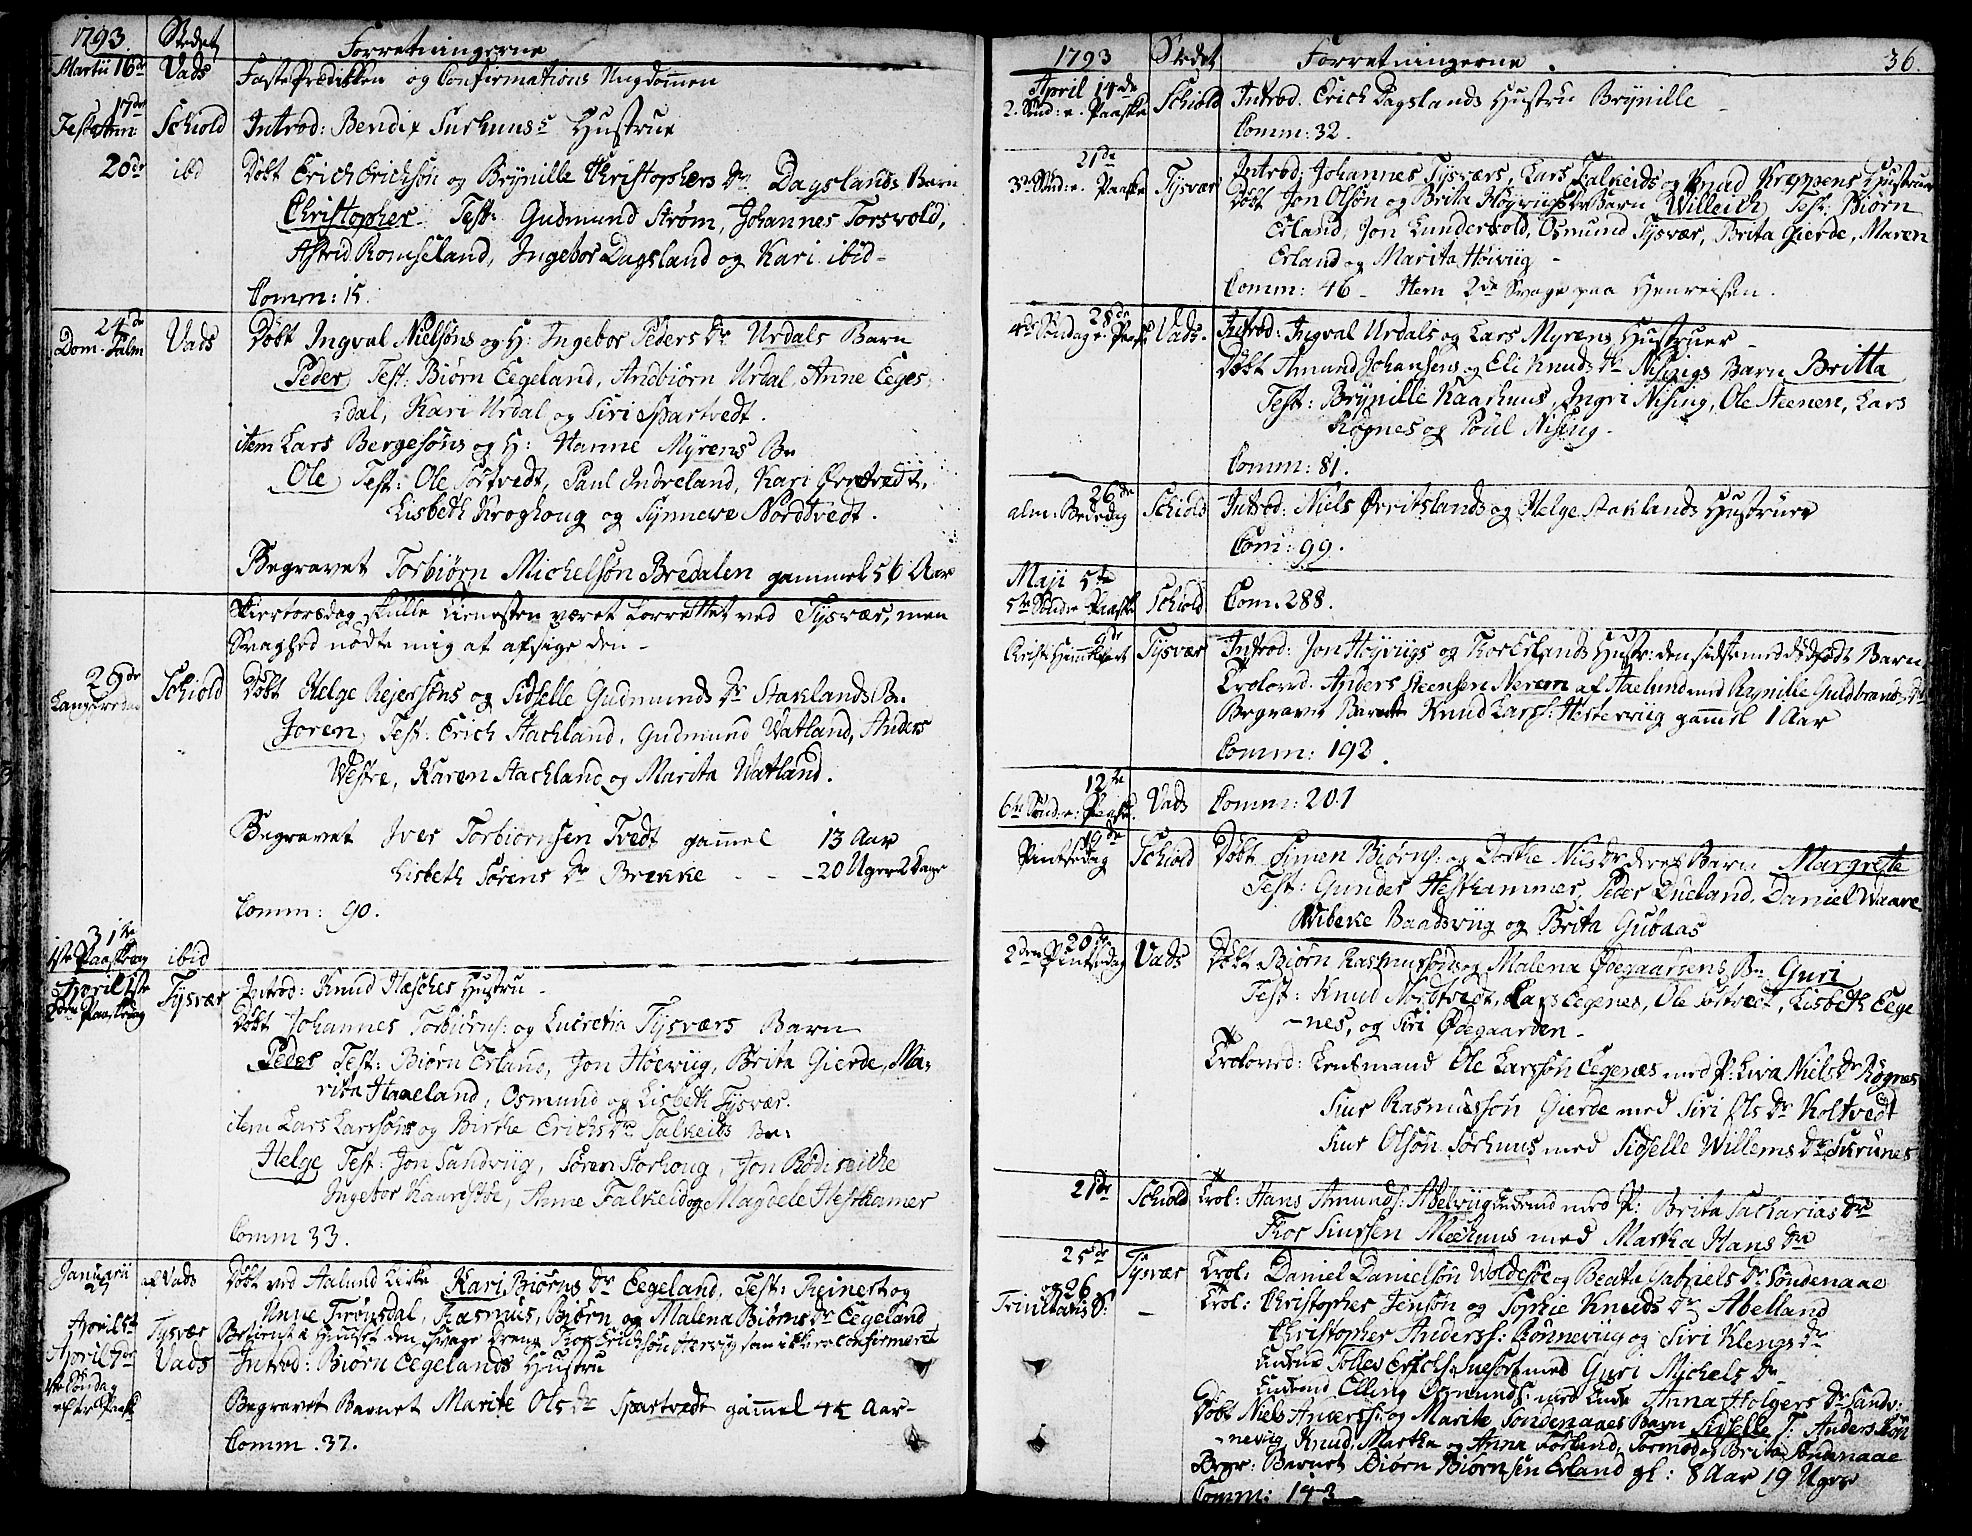 1793. Stedet Forretningerne
Martii 16de Vads FastePrædikken og Confirmations Ungdommen
17de
Schiold Introd: Bendix Surhuuss Hustrue
20de ibd Døbt Erich Erichsøn og Brynille Christophers Dr Dagslands Barn
Christopher Test: Gudmund Strøm, Johannes Torsvold,
Astrid Romseland, Ingebor Dagsland og Kari ibid
Comm: 15.
24de
Dom. Palm Vads Døbt Ingval Nielsøns og H: Ingebor Peders Dr Urdals Barn
Peder Test: Biørn Eegeland, Andbiørn Urdal, Anne Eeges-
dal, Kari Urdal og Siri Spartvedt.
item Lars Bergesøns og H: Hanne Myrens Bn
Ole Test: Ole Førtvedt, Paul Indreland, Kari Ørretvedt,
Lisbeth Kroghoug og Synneve Nordtvedt.
Begravet Torbiørn Michelsøn Bredalen gammel 56 Aar
Skiertorsdag skulle tienesten været forrettet ved Tysvær, men
Svaghed nødte mig at afsige den
29de
Langfredag Schiold Døbt Helge Rejersøns og Sidselle Gudmunds Dr Staklands Bn
Joren, Test: Erich Stachland, Gudmund Vatland, Anders
Vestre, Karen Stachland og Marita Vatland.
Begravet Iver Torbiørnsen Tvedt gammel 13 Aar
Lisbeth Sørens Dr Brekke - - 20 Uger 2 Dage
Comm: 90.
31te
1ste Paaskedag ibid
April 1ste Tysvær Introd: Knud Hæsches Hustru
2den Paaskedag
Døbt Johannes Torbiørns: og Lucretia Tysværs Barn
Peder Test: Biørn Erland, Jon Høieviig, Brita Gierde, Ma-
rita Haaeland, Osmund og Lisbeth Tysvær.
item Lars Larssøns og Birthe Erichs Dr Falkeids Bn:
Helge Test: Jon Sandviig, Søren Storhoug, Jon Rødiseiche
Ingebor Kaarstøe, Anne Falkeid og Magdele Hesthamer
Comm 33.
Januarii
27 af Vads Døbt ved Aalund Kirke Kari Biørns Dr Eegeland. Test: Reinert og
Anne Frønsdal, Rasmus, Biørn og Malena Biørns Dr Eegeland
April 5te Tysvær Betient i Huuset den svage Dreng Thor Erichsøn Herviig som ikke er confirmeret
April 7de Vads Introd: Biørn Eegelands Hustru
1ste Søndag
efter Paaske Begravet Barnet Marite Ols Dr Spartvedt gammel 4½ Aar
Comm. 37.
1793 Stedet Forretningerne. 36.
April 14de
2. Sønd: e. Paaske Schiold Introd. Erich Dagslands Hustru Brynille
Comm: 32.
21de
3die Sønd: e. Paaske Tysvær Introd: Johannes Tysværs, Lars Falkeids og Knud Kreppens Hustruer
Døbt Jon Olsøn og Brita Høyviigs Barn Willeich Test: Biørn
Erland, Jon Lundervold, Osmund Tysvær, Brita Gierde, Maren
Erland og Marita Høiviig
Comm: 46 Item 2de Svage paa Henreisen.
28de
4de Søndag e. Paaske Vads. Introd: Ingval Urdals og Lars Myrens Hustruer
Døbt Amund Johansens og Eli Knuds Dr Nisings Barn Britta
Test: Brynille Kaarhuus, Ingri Nising, Ole Steenen, Lars
Røgnes og Poul Nising.
Comm: 81.
26de
alm: Bededag Schiold Introd: Niels Ørritslands og Helge Staklands Hustruer
Com: 99.
Maji 5te
5te Sønd e Paaske Schiold Com. 288.
9de
Christi Himmelfart Tysvær Introd: Jon Høyviigs og Thor Erlands Hustr: den sidste med dødfødt Barn
Trolovd. Anders Steensen Nerem af Aaelund med Rynille Guldbrands Dr
Begravet Barnet Knud Larss: Hesteviig gammel 1 Aar
Comm: 192.
12te
6te Sønd: e: Paaske. Vads Comm: 201
19de
Pintsedag Schiold Døbt Simen Biørns: og Dorthe Nils Dr deres Barn Margrete
Test: Gunder Hesthammer, Peder Dueland, Daniel Waare
Wibeke Baadsviig og Brita Gubaas
20de
2den Pintsedag Vads Døbt Biørn Rasmussøns og Malena Ødegaardens Bn Guri
Test: Knud Nordtvedt, Lars Eegenes, Ole Førtvedt, Lisbeth Eege
-nes, og Siri Ødegaarden
Trolovd: Leutmand Ole Larssøn Eegenæs med P: Liva Niels Dr Røgnes
Siur Rasmussøn Gierde med Siri Ols Dr Koltvedt
Siur Olsøn Sørhuus med Sidselle Willems Dr Skrunes
21de Schiold Trol: Hans Amunds: Abelviig Enkemd med P: Brita Zacharias Dr
Thor Siursen Mæehuus med Martha Hans Dr
25de Tysvær Trol: Daniel Danielsøn Woldesøe og Beata Gabriels Dr Søndenaae
og 26
Trinitatis S: — Trol: Christopher Jensøn og Sophie Knuds Dr Abelland
Christopher Anderss: Bønneviig og Siri Klengs Dr
Enkemd Tollev Erichs: med Guri Michels Dr
Enkemd Elling Osmunds: med Enke Anna Holgers Dr Sandv:
Døbt Niels Anderss: og Marite Søndenaaes Barn Sidselle T: Anders Bøn
-neviig, Knud, Martha og Anna Førland, Tormod og Brita Søndenaae
Begr: Barnet Biørn Biørnsen Erland gl: 8 Aar 19 Uger
Comm: 143